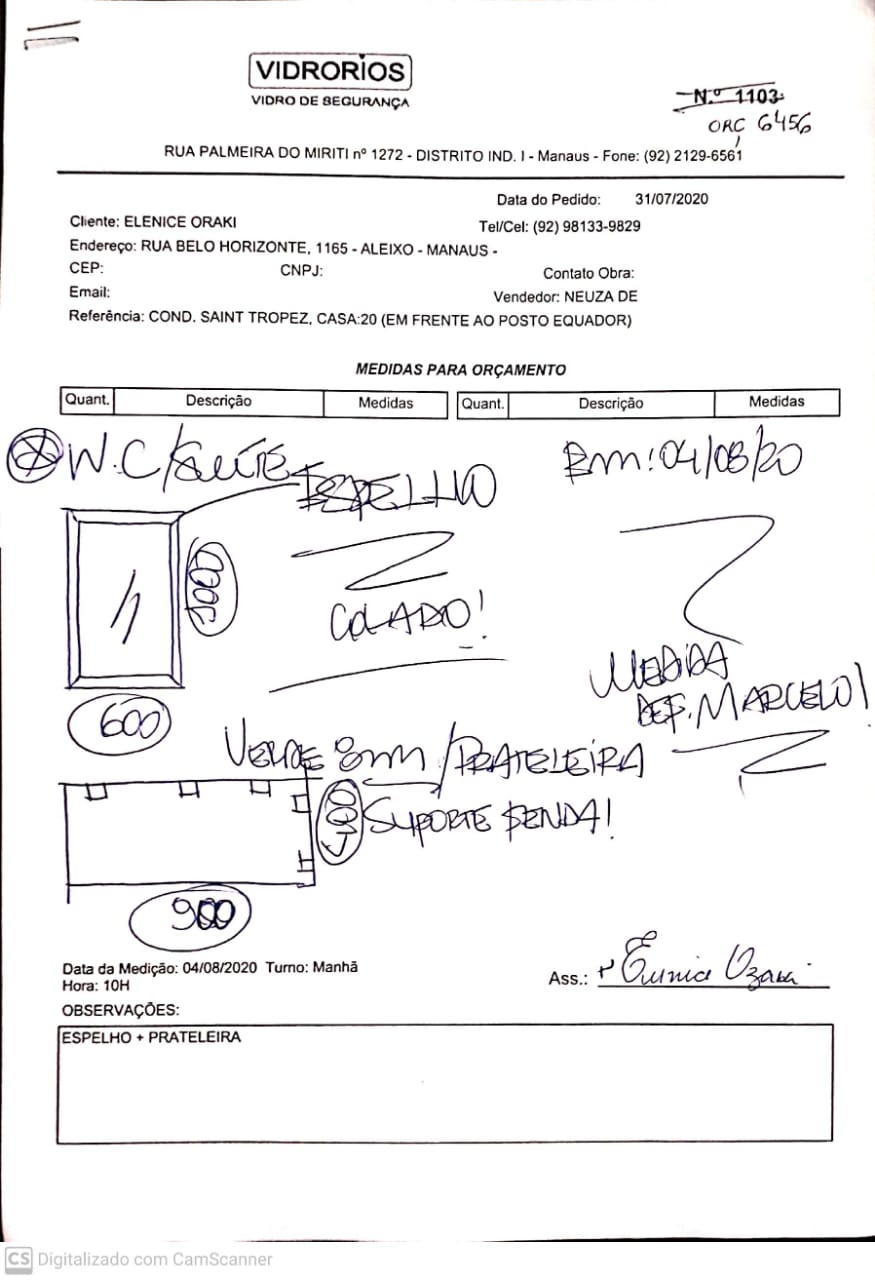 VIDRORIOS
VIDRO DE SEGURANÇA
N.º 1103
ORC 6456
RUA PALMEIRA DO MIRITI nº 1272 - DISTRITO IND. I - Manaus - Fone: (92) 2129-6561
Data do Pedido: 31/07/2020
Cliente: ELENICE ORAKI
Tel/Cel: (92) 98133-9829
Endereço: RUA BELO HORIZONTE, 1165 - ALEIXO - MANAUS -
CEP: CNPJ: Contato Obra:
Email: Vendedor: NEUZA DE
Referência: COND. SAINT TROPEZ, CASA:20 (EM FRENTE AO POSTO EQUADOR)
MEDIDAS PARA ORÇAMENTO
Quant. Descrição Medidas Quant. Descrição Medidas
W.C/SUÍTE
Em: 04/08/20
ESPELHO
COLADO!
MEDIDA
DEF. MARCELO!
600
VERDE 8mm/PRATELEIRA
SUPORTE FENDA!
900
Data da Medição: 04/08/2020 Turno: Manhã
Hora: 10H
Ass.: Eunice Ozaki
OBSERVAÇÕES:
ESPELHO + PRATELEIRA
CS Digitalizado com CamScanner